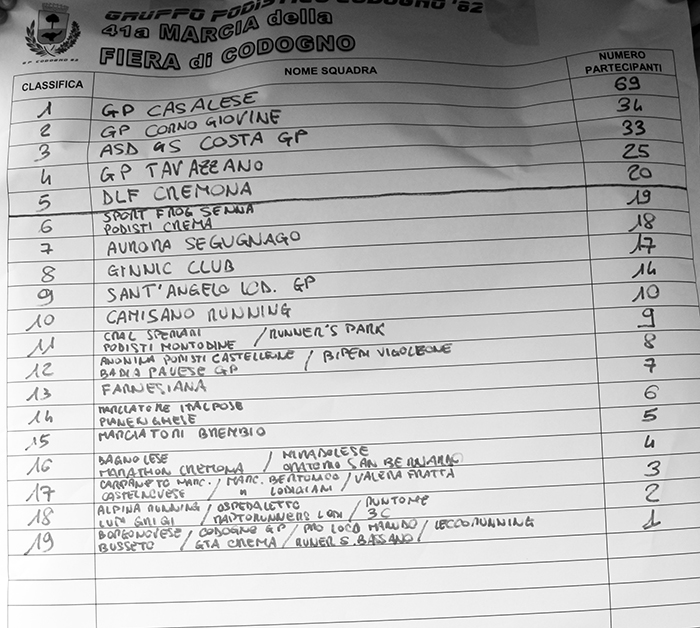 GRUPPO PODISTICO CODOGNO '82
41a MARCIA della
FIERA di CODOGNO
G.P. CODOGNO 82
CLASSIFICA NOME SQUADRA NUMERO PARTECIPANTI
1 GP CASALESE 69
2 GP CORNO GIOVINE 34
3 ASD GS COSTA GP 33
4 GP TAVAZZANO 25
5 DLF CREMONA 20
6 SPORT FROG SENNA 19
PODISTI CREMA
7 AURORA SEGUGNAGO 18
8 GINNIC CLUB 17
9 SANT'ANGELO LOD. GP 14
10 CAMISANO RUNNING 10
11 CRAL SPERLARI / RUNNER'S PARK 9
PODISTI MONTODINE
12 ANONIMA PODISTI CASTELLEONE / BIPEDI VIGOLEONE 8
BADIA PAVESE GP
13 FARNESIANA 7
14 MARCIATORI ITALPOSE 6
PIANENGHESE
15 MARCIATORI BREMBIO 5
16 BAGNOLESE / MIRADOLESE 4
MARATHON CREMONA / ORATORIO SAN BERNARDO
17 CARPANETO MARC. / MARC. BERTONICO / VALERA FRATTA 3
CASTELNOVESE / " LODIGIANI
18 ALPINA RUNNING / OSPEDALETTO / RUNTOME 2
LUPI GRIGI / RAPTORUNNERS LODI / 3C
19 BORGONOVESE / CODOGNO GP / PRO LOCO MAIRAGO / LECCORUNNING 1
BUSSETO / GTA CREMA / RUNER S. BASSANO /